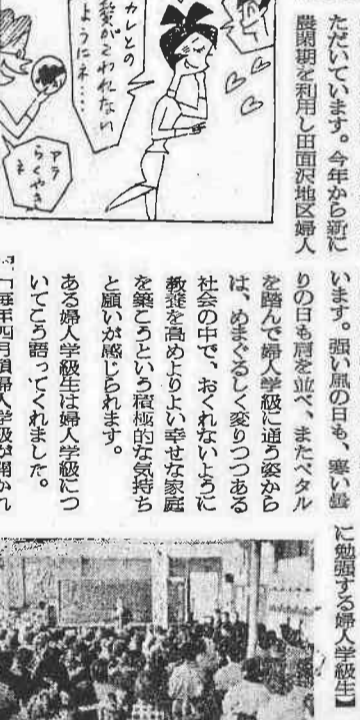 ただいています。今年から新に
農閑期を利用し田面沢地区婦人
カレとの
愛がこわれない
ようにネ・・・・
アラ
らくやき
ネ
います。強い風の日も、寒い曇
りの日も肩を並べ、またペタル
を踏んで婦人学級に通う姿から
は、めまぐるしく変りつつある
社会の中で、おくれないように
教養を高めよりよい幸せな家庭
を築こうという積極的な気持ち
と願いが感じられます。
ある婦人学級生は婦人学級につ
いてこう語ってくれました。
「毎年四月頃婦人学級が開かれ
に勉強する婦人学級生】